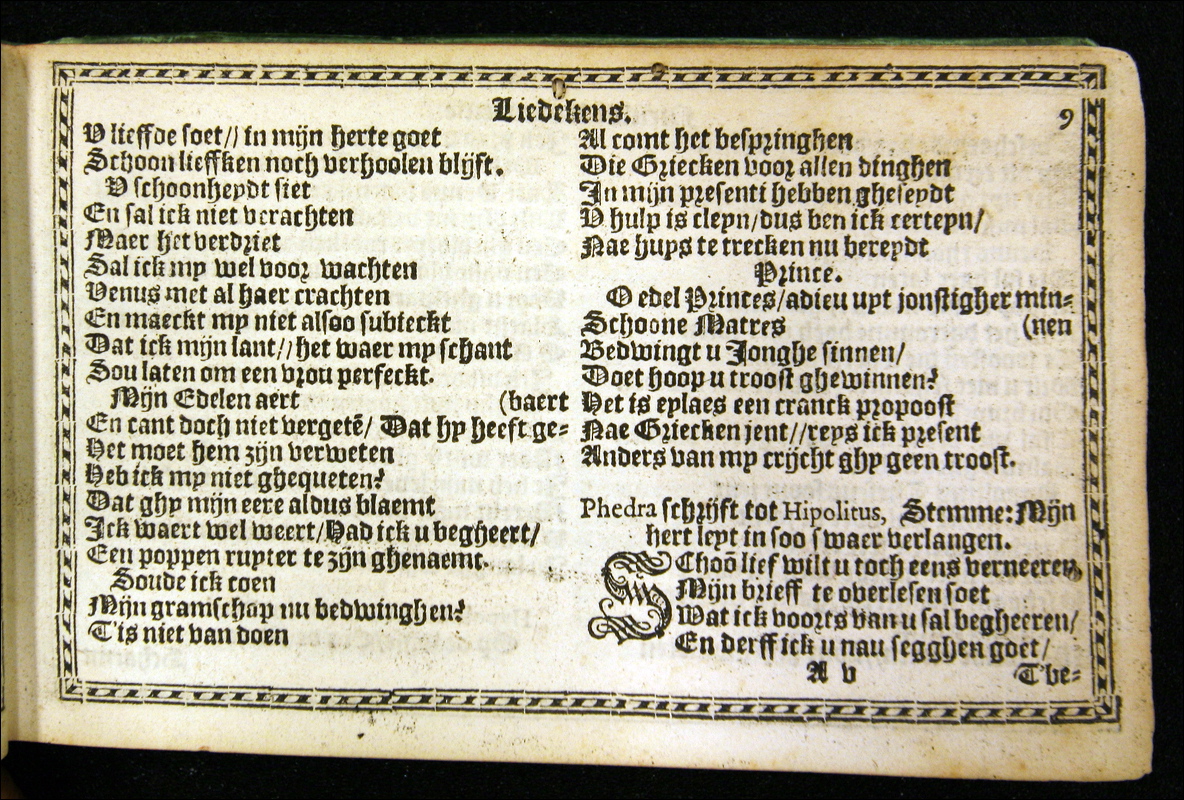 Liedekens.
9
V lieffde soet// in mijn herte goet
Schoon lieffken noch verhoolen blijft.
V schoonheydt siet
En sal ick niet verachten
Maer het verdriet
Sal ick my wel voor wachten
Venus met al haer crachten
En maeckt my niet alsoo subieckt
Dat ick mijn lant//het waer my schant
Sou laten om een vrou perfeckt.
Mijn Edelen aert (baert
En cant doch niet vergetẽ/ Dat hy heeft ge-
Het moet hem zijn verweten
Heb ick my niet ghequeten?
Dat ghy mijn eere aldus blaemt
Ick waert wel weert/Had ick u begheert/
Een poppen ruyter te zijn ghenaemt.
Soude ick coen
Mijn gramschap nu bedwinghen?
T'is niet van doen
Al comt het bespringhen
Die Griecken voor allen dinghen
In mijn presenti hebben gheseydt
V hulp is cleyn/dus ben ick certeyn/
Nae huys te trecken nu bereydt
Prince.
O edel Princes/adieu uyt jonstigher min-
Schoone Matres (nen
Bedwingt u Jonghe sinnen/
Doet hoop u troost ghewinnen?
Het is eylaes een cranck propoost
Nae Griecken jent//reys ick present
Anders van my crijcht ghy geen troost.
Phedra schrijft tot Hipolitus, Stemme: Mijn
hert leyt in soo swaer verlangen.
SChoõ lief wilt u toch eens verneeren
Mijn brieff te overlesen soet
Wat ick voorts van u sal begheeren/
En derff ick u nau segghen goet/
A v
T'be-